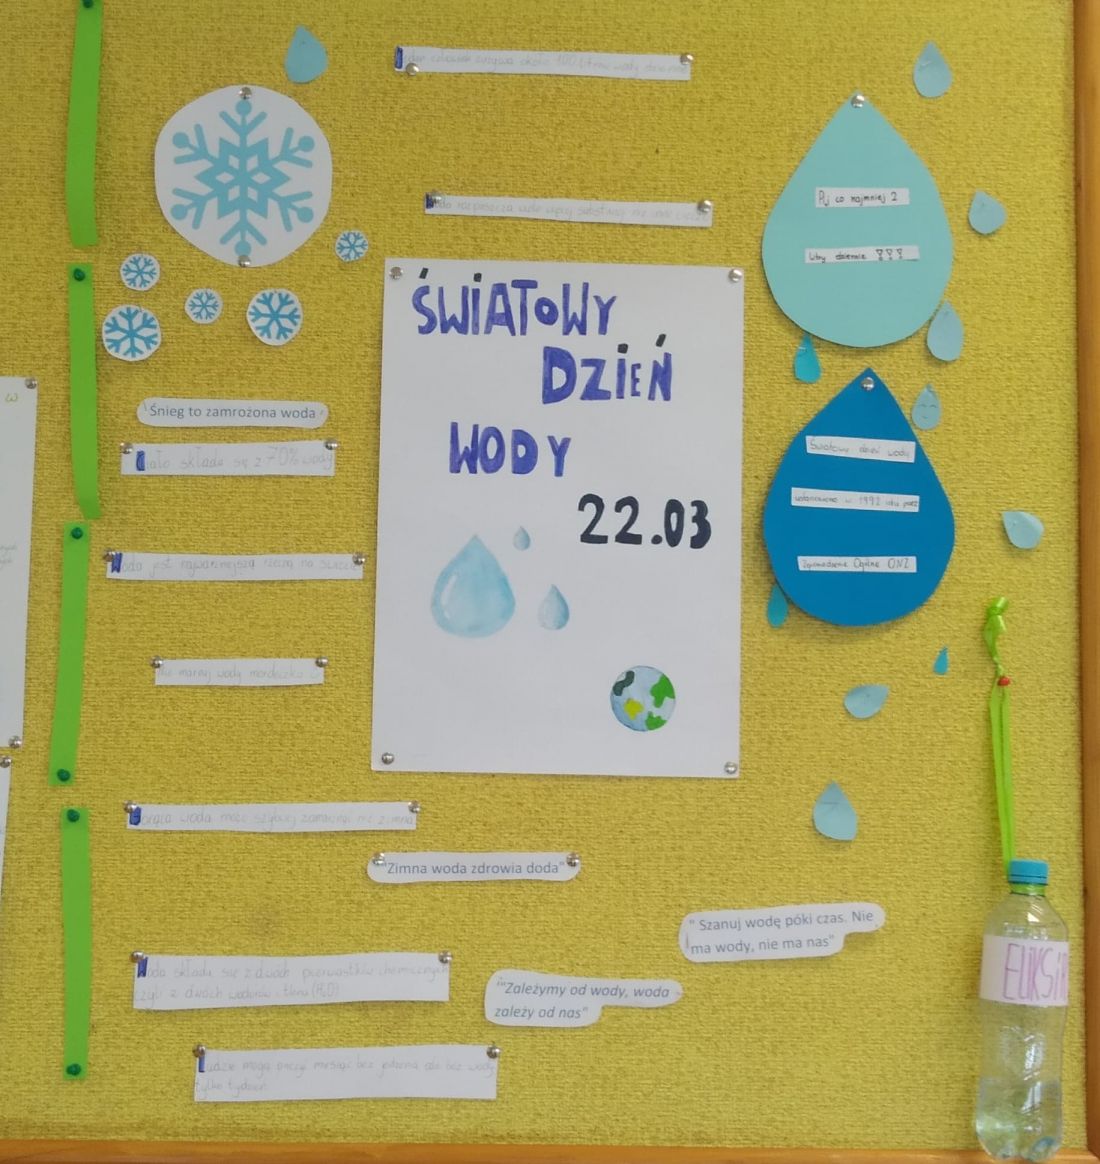 człowiek zużywa około 100 litrów wody dziennie
rozpuszcza wiele więcej substancji niż inne ciecze
ŚWIATOWY
DZIEŃ
WODY
22.03
Pij co najmniej 2
litry dziennie !!!
Światowy dzień wody
ustanowiono w 1992 roku przez
Zgromadzenie Ogólne ONZ
Śnieg to zamrożona woda
Ciało składa się z 70% wody
Woda jest najważniejszą rzeczą na świecie
Nie marnuj wody mordeczko
Gorąca woda może szybciej zamarznąć niż zimna
"Zimna woda zdrowia doda"
" Szanuj wodę póki czas. Nie
ma wody, nie ma nas"
Woda składa się z dwóch pierwiastków chemicznych
czyli z dwóch wodorów i tlenu (H₂O)
"Zależymy od wody, woda
zależy od nas"
Ludzie mogą przeżyć miesiąc bez jedzenia ale bez wody
tylko tydzień
ELIKSIR
w